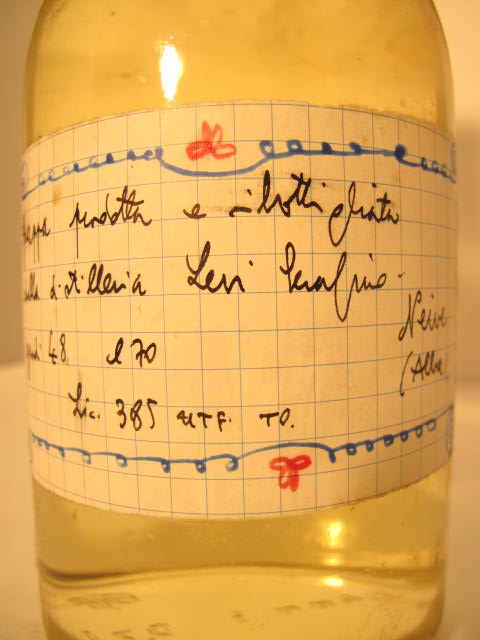 grappa prodotta e imbottigliata
dalla distilleria Levi Serafino -
Neive
gradi 48. l 70
(Alba)
Lic. 385 UTF. TO.